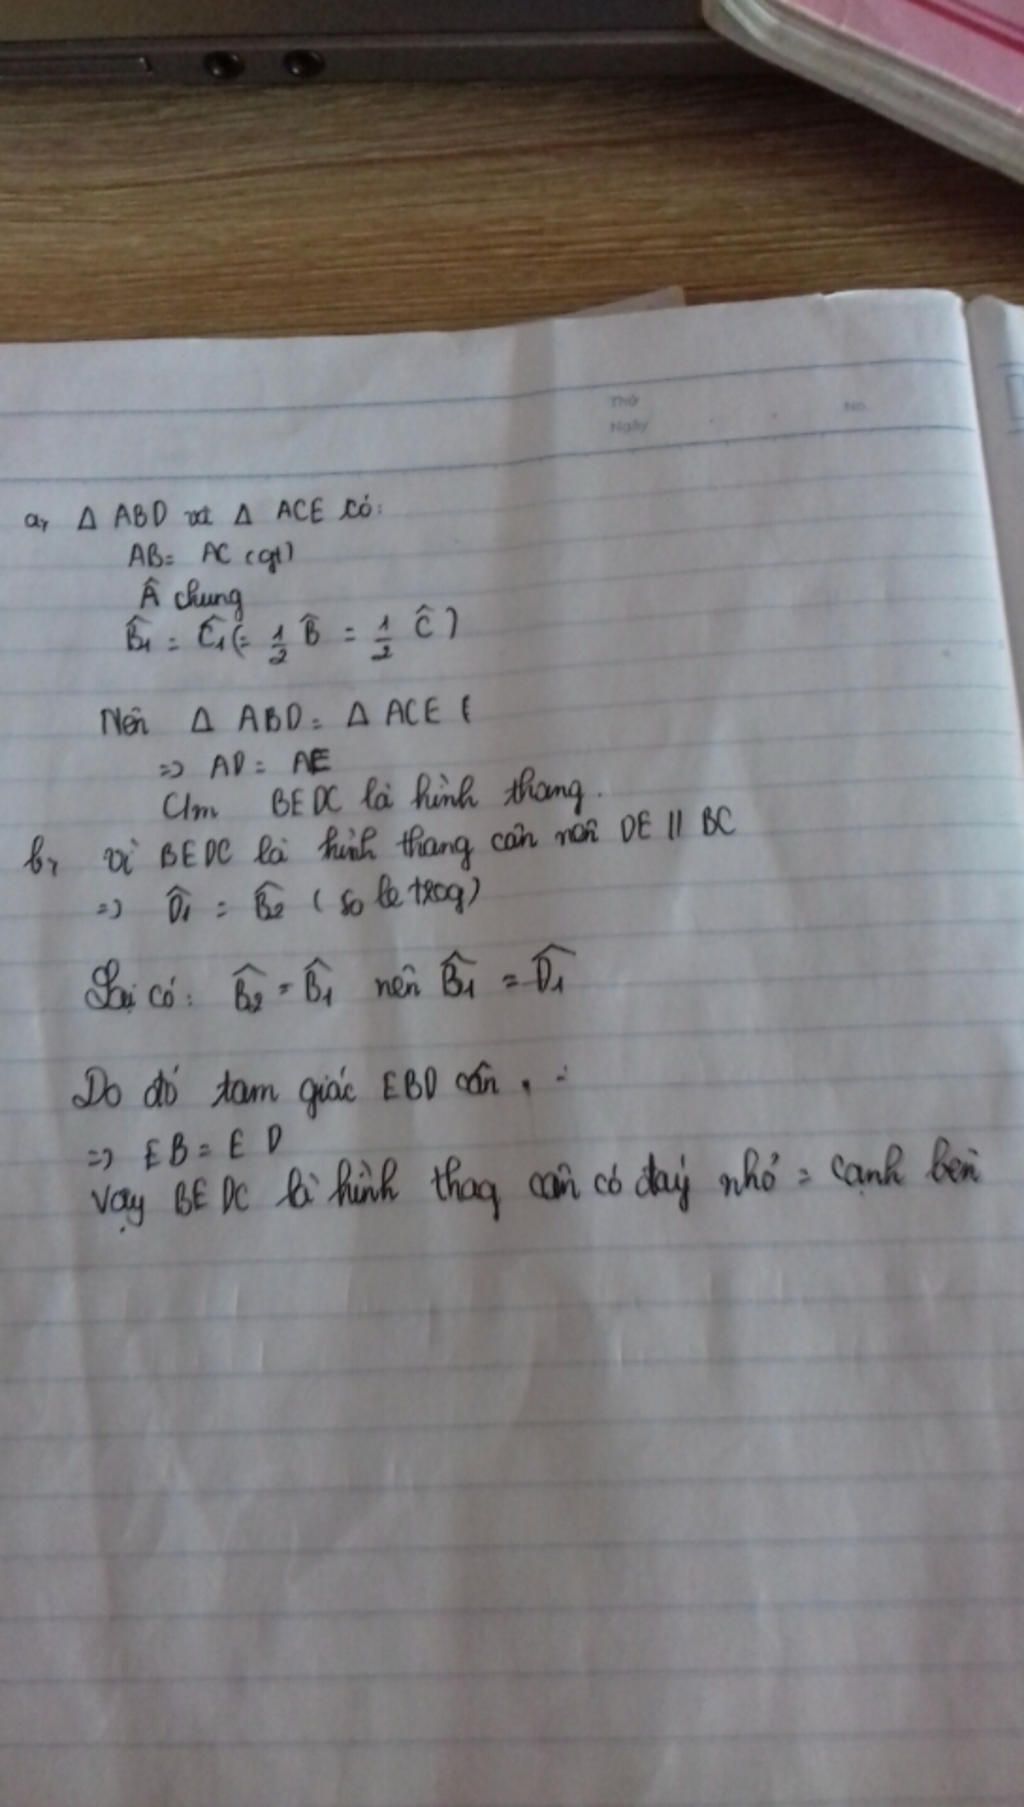 Thứ
Ngày
No.
a, Δ ABD và Δ ACE có:
AB = AC (gt)
Â chung
B̂₁ = Ĉ₁ (= 1/2 B̂ = 1/2 Ĉ)
Nên Δ ABD = Δ ACE (
=> AD = AE
C/m BEDC là hình thang.
b, vì BEDC là hình thang cân nên DE // BC
=> D̂₁ = B̂₂ (so le trog)
Lại có: B̂₂ = B̂₁ nên B̂₁ = D̂₁
Do đó tam giác EBD cân
=> EB = ED
Vậy BEDC là hình thag cân có đáy nhỏ = cạnh bên